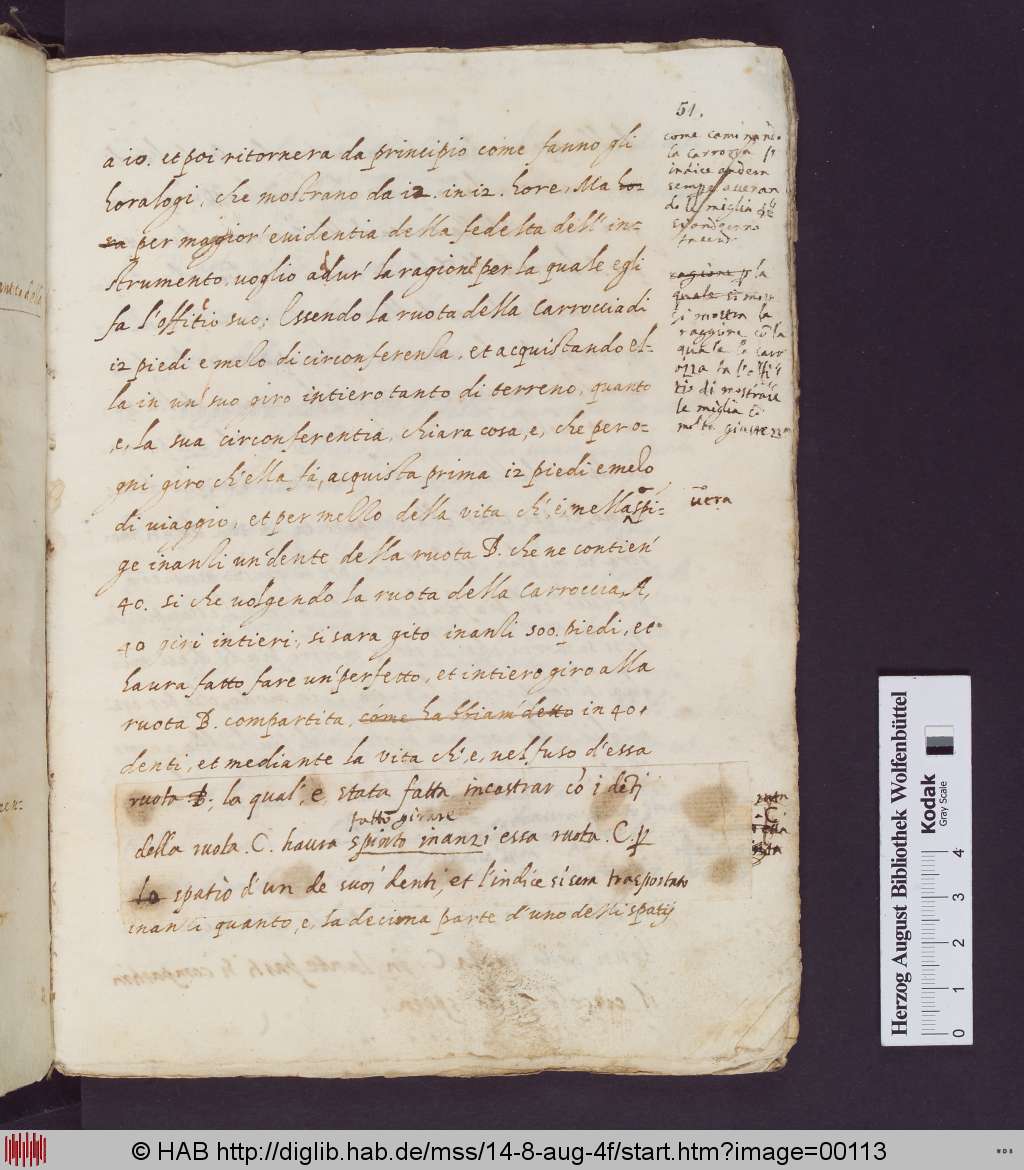 51.
a io. et poi ritornera da principio come fanno gli
horalogi, che mostrano da i2. in i2. hore, Ma hor
sa per maggior' evidentia della fedelta dell' in=
strumento, voglio adur' la ragione per la quale egli
fa l'offitio suo; Essendo la ruota della Carroccia di
i2 piedi e mezo di circonferenza, et acquistando el-
la in un' suo giro intiero tanto di terreno, quanto
e, la sua circonferentia, chiara cosa, e, che per o-
gni giro ch'ella fa, acquista prima i2 piedi e mezo
di viaggio, et per mezzo della vita ch', e, nella spi=
ge inanzi un' dente della ruota B. che ne contien'
40. si che volgendo la ruota della Carroccia, A,
40 giri intieri, si sara gito inanzi 500. piedi, et
haura fatto fare un' perfetto, et intiero giro alla
ruota B. compartita, come habbiam' detto in 40.
denti, et mediante la vita ch'e, nel fuso d'essa
ruota B. la qual', e, stata fatta incastrar cō i dēti
fatto girare
della ruota .C. haura spinto inanzi essa ruota .C. p
lo spatio d'un de suoi denti, et l'indice si sera trasportato
inanzi quanto, e, la decima parte d'uno delli spatij
come caminan
la carrozza
indice
sempre
do le miglia
ragione p la
quale si
si mostra la
raggione cō la
quale la carr
ozza fa l'offi
tio di mostrare
le miglia
molta
vera
Herzog August Bibliothek Wolfenbüttel
Kodak
Gray Scale
0 1 2 3 4
© HAB http://diglib.hab.de/mss/14-8-aug-4f/start.htm?image=00113